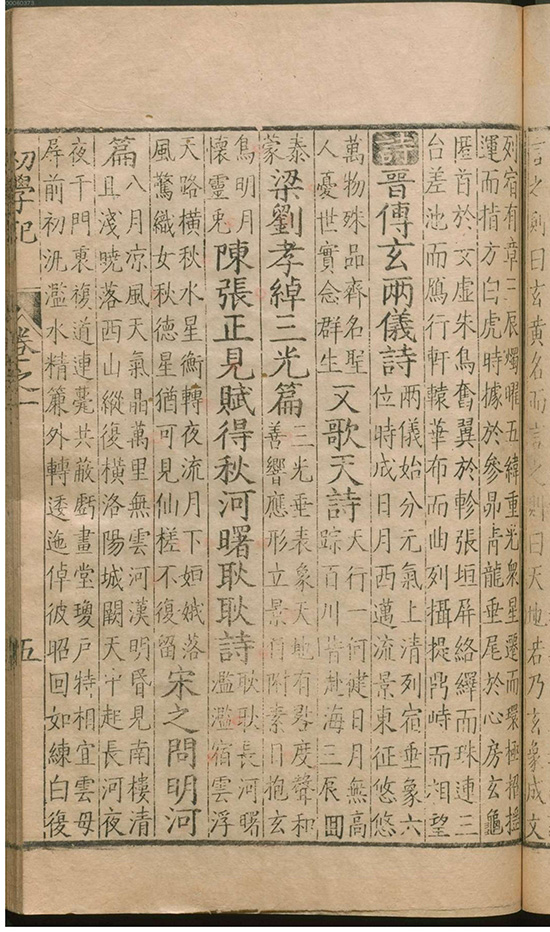 言之則曰玄黃名而言之則曰天地若乃玄象成文
列宿有章三辰燭曜五緯重光衆星遷而環極招搖
運而指方白虎時據於參昴青龍垂尾於心房玄龜
匿首於女虛朱鳥奮翼於軫張垣屏絡繹而珠連三
台差池而鴈行軒轅華布而曲列攝提鼎峙而相望
詩 晉傅玄兩儀詩
兩儀始分元氣上清列宿垂象六
位時成日月西邁流景東征悠悠
萬物殊品齊名聖
人憂世實念群生
又歌天詩
天行一何健日月無高
蹤百川皆赴海三辰回
泰
蒙
梁劉孝綽三光篇
三光垂表象天地有晷度聲和
善響應形立景自附素日抱玄
烏明月
懷靈兎
陳張正見賦得秋河曙耿耿詩
耿耿長河曙
濫濫宿雲浮
天路橫秋水星衡轉夜流月下姮娥落
風驚織女秋德星猶可見仙槎不復留
宋之問明河
篇
八月凉風天氣晶萬里無雲河漢明昏見南樓清
且淺曉落西山縱復橫洛陽城闕天中起長河夜
夜千門裏複道連甍共蔽虧畫堂瓊戶特相宜雲母
屏前初汎濫水精簾外轉逶迤倬彼昭回如練白復
初學記 卷之一 五